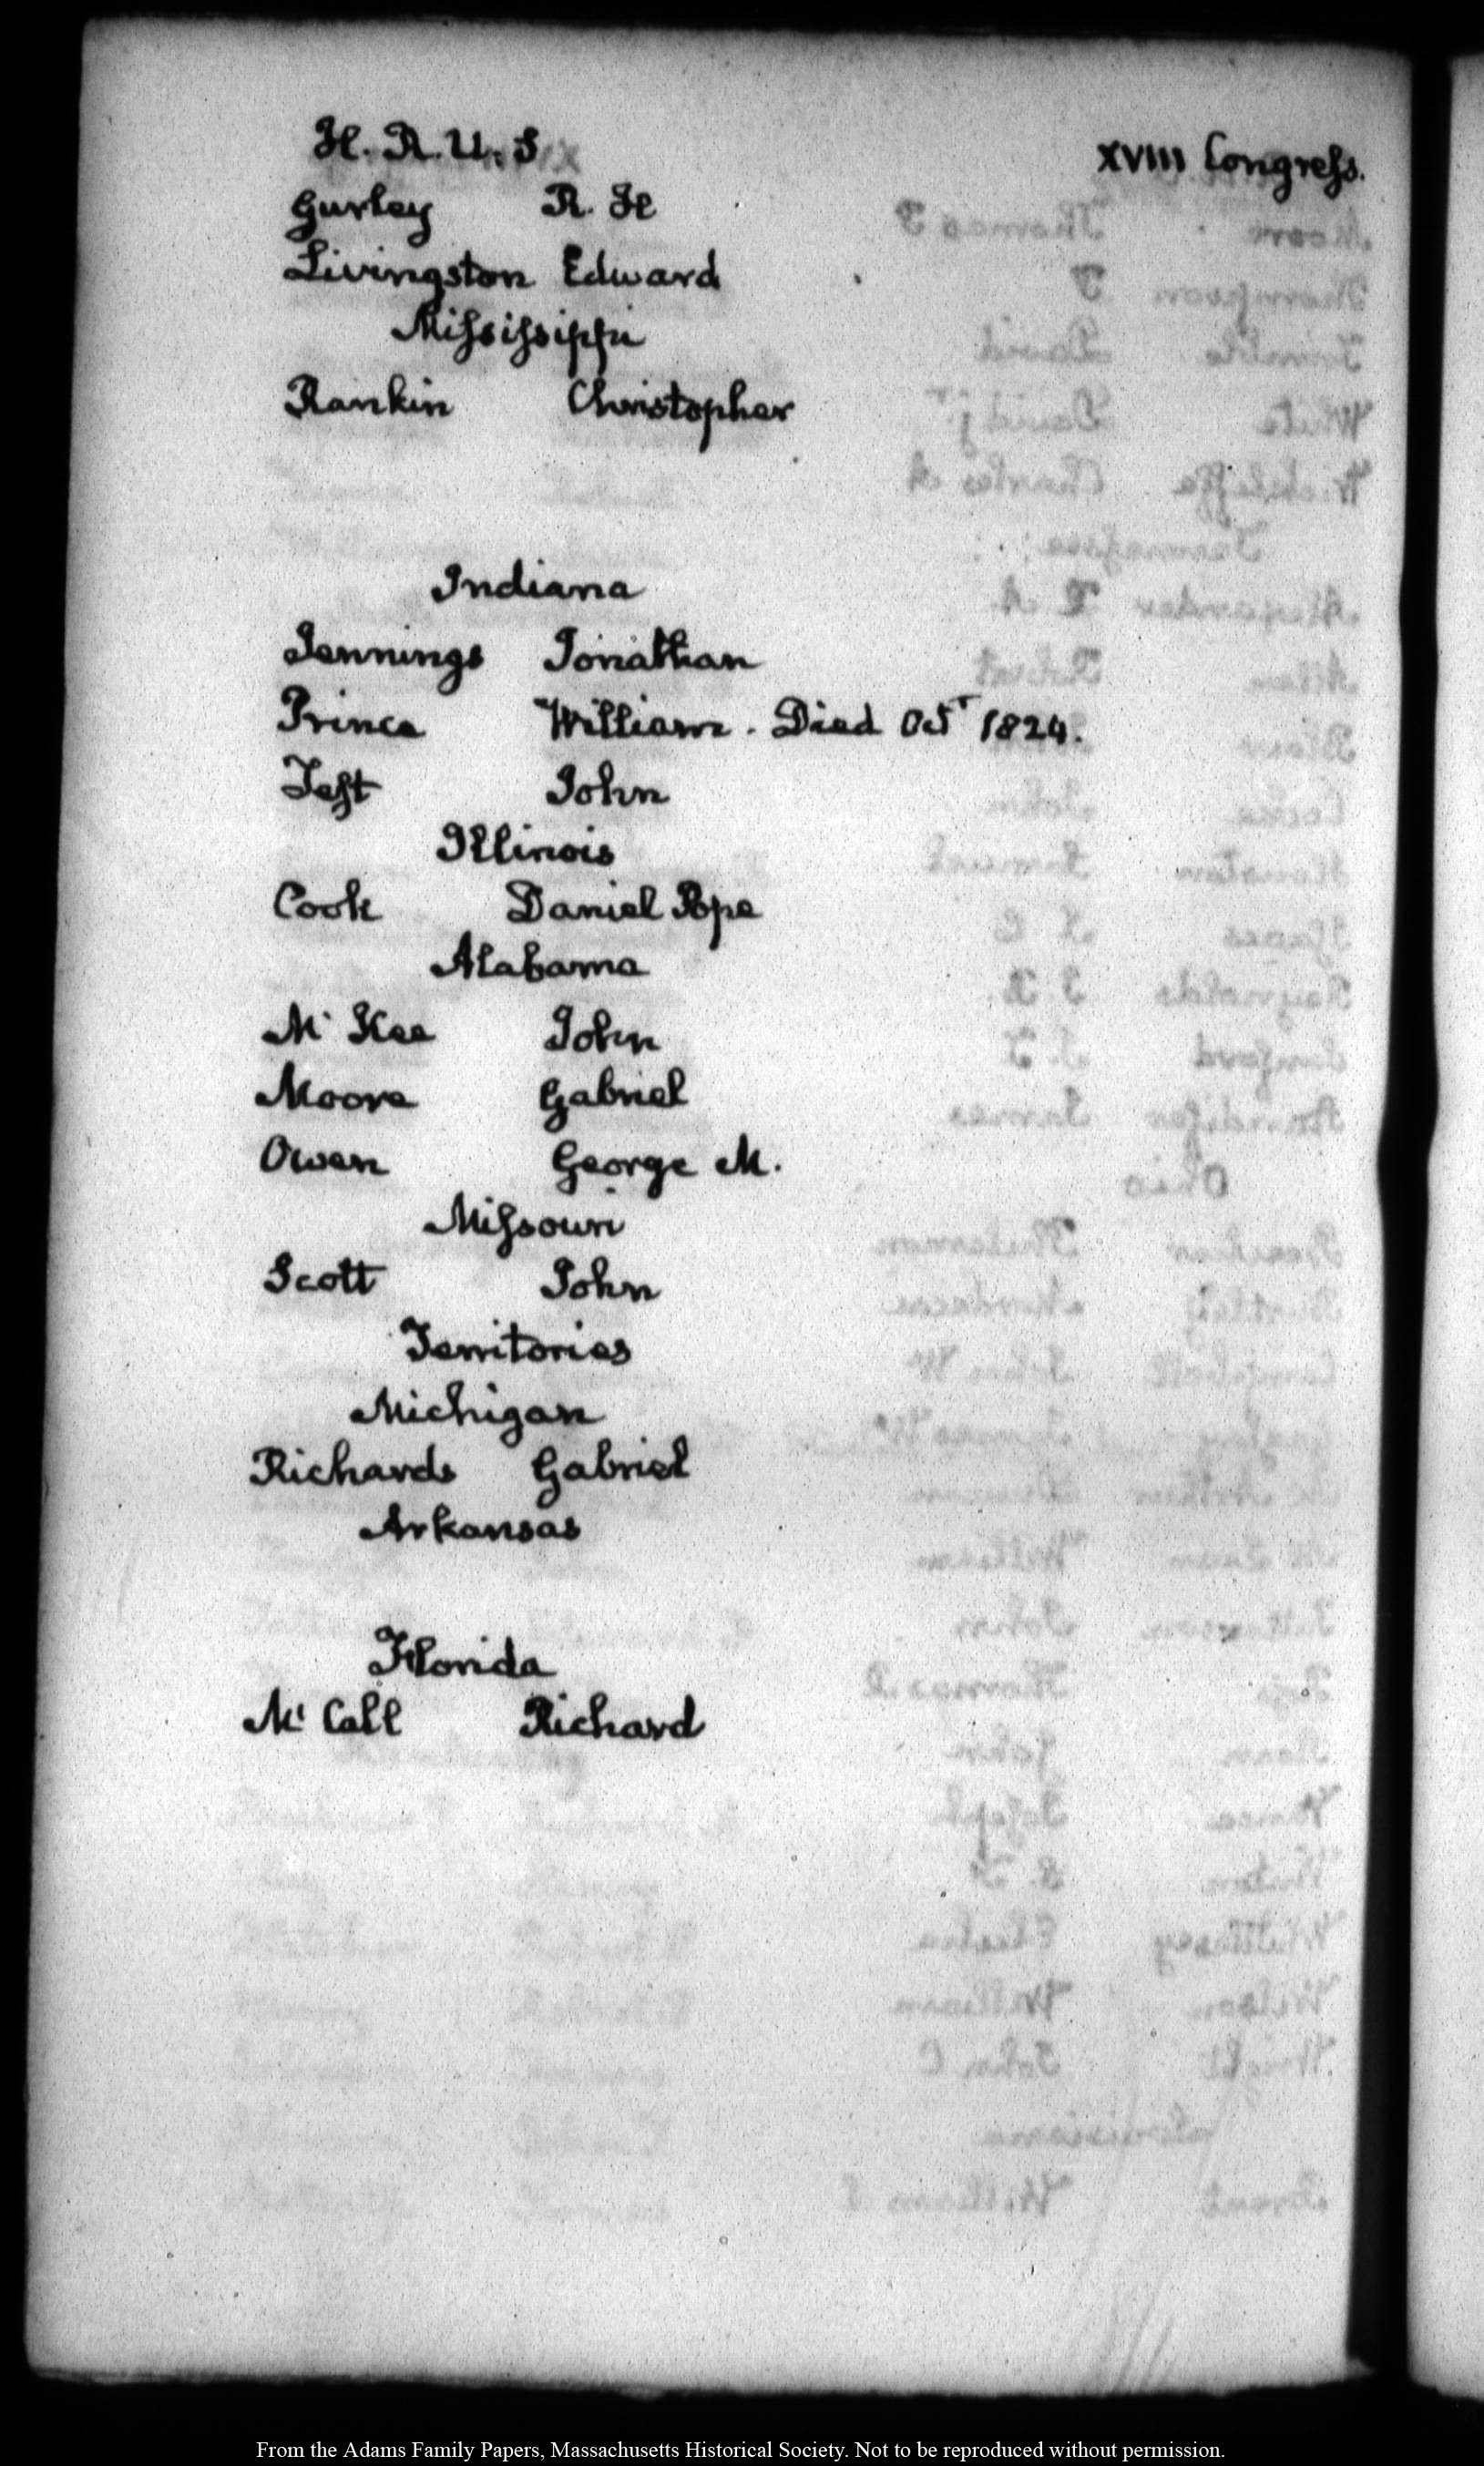 H. R. U. S. XVIII Congress.
Gurley R. H
Livingston Edward
Mississippi
Rankin Christopher
Indiana
Jennings Jonathan
Prince William. Died Octr 1824.
Test John
Illinois
Cook Daniel Pope
Alabama
Mc Kee John
Moore Gabriel
Owen George M.
Missouri
Scott John
Territories
Michigan
Richards Gabriel
Arkansas
Florida
Mc Call Richard
From the Adams Family Papers, Massachusetts Historical Society. Not to be reproduced without permission.